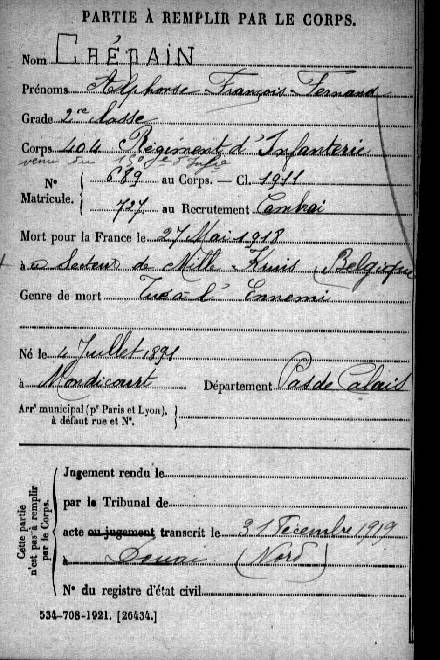 PARTIE À REMPLIR PAR LE CORPS.
Nom CRÉPAIN
Prénoms Alphonse François Fernand
Grade 2me classe
Corps 404 Régiment d'Infanterie
venu du
N° Matricule. 689 au Corps. — Cl. 1911
727 au Recrutement Cambrai
Mort pour la France le 27 Mai 1918
à Secteur de Mille Kruis (Belgique
Genre de mort Tué à l'Ennemi
Né le 4 Juillet 1891
à Mondicourt Département Pas de Calais
Arrt municipal (pr Paris et Lyon), à défaut rue et N°.
Cette partie n'est pas à remplir par le Corps.
Jugement rendu le
par le Tribunal de
acte ou jugement transcrit le 31 Décembre 1919
à Douai (Nord)
N° du registre d'état civil
534-708-1921. [26434.]